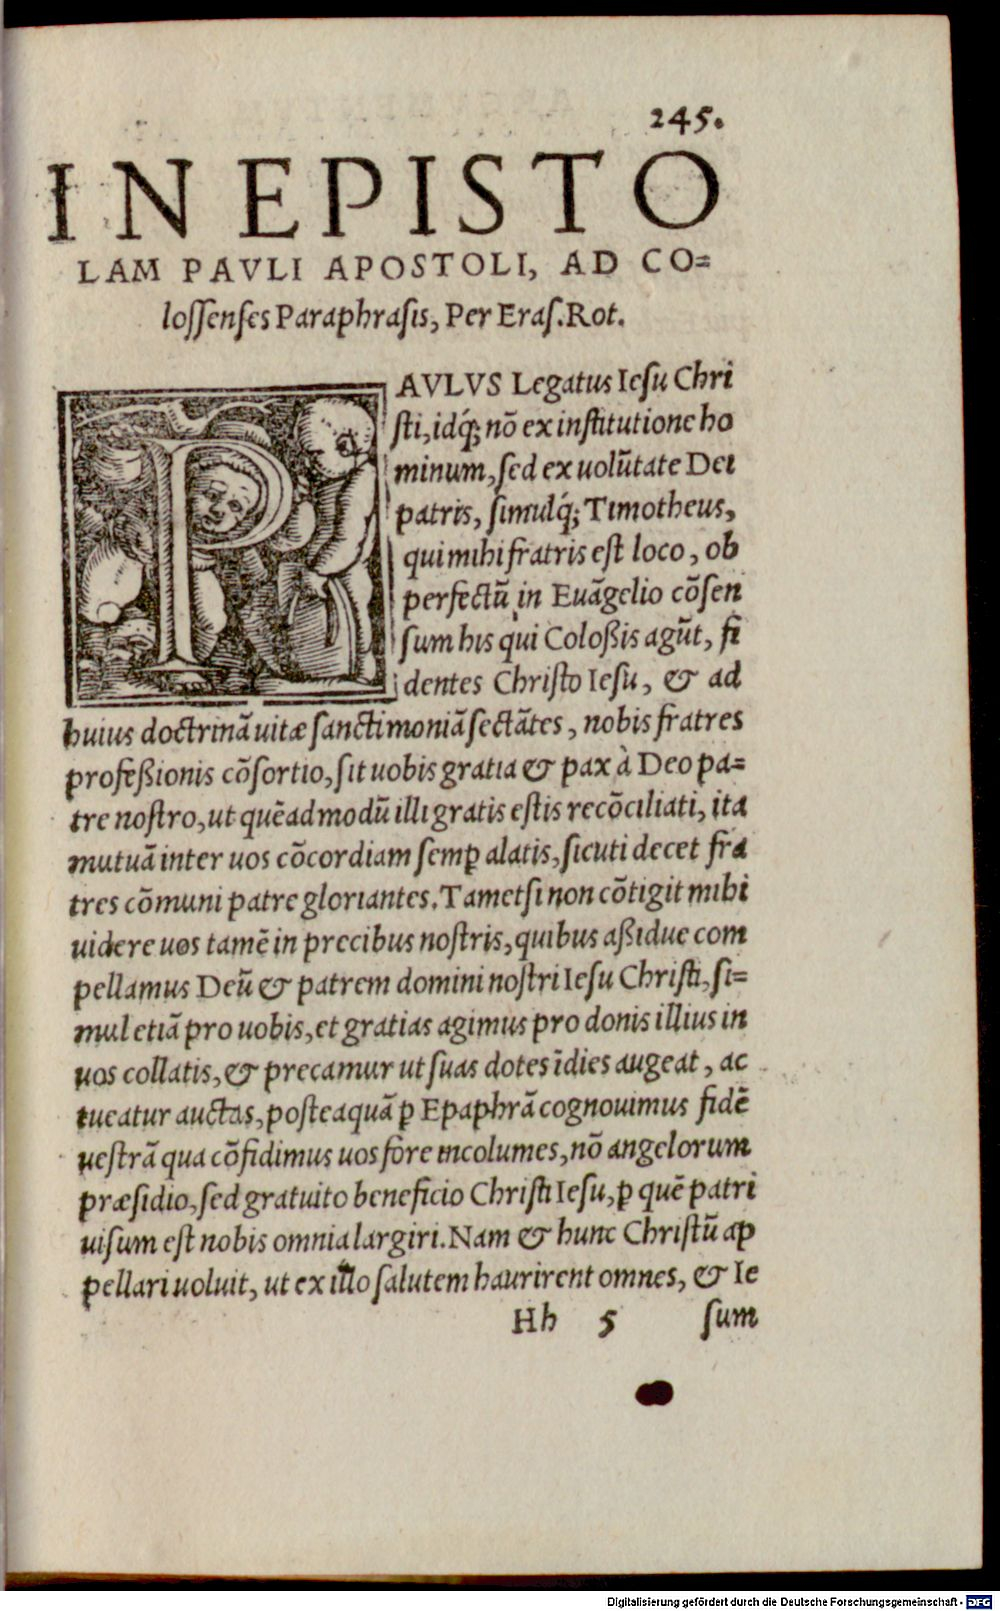 245.
IN EPISTO
LAM PAVLI APOSTOLI, AD CO=
loſſenſes Paraphraſis, Per Eraſ. Rot.
PAVLVS Legatus Ieſu Chri
ſti, idq́; nō ex inſtitutione ho
minum, ſed ex uolūtate Dei
patris, ſimulq́; Timotheus,
qui mihi fratris eſt loco, ob
perfectū in Euāgelio cōſen
ſum his qui Coloßis agūt, fi
dentes Chriſto Ieſu, & ad
huius doctrinā uitæ ſanctimoniā ſectātes, nobis fratres
profeßionis cōſortio, ſit uobis gratia & pax à Deo pa=
tre noſtro, ut quēadmodū illi gratis eſtis recōciliati, ita
mutuā inter uos cōcordiam ſemꝑ alatis, ſicuti decet fra
tres cōmuni patre gloriantes. Tametſi non cōtigit mihi
uidere uos tamē in precibus noſtris, quibus aßidue com
pellamus Deū & patrem domini noſtri Ieſu Chriſti, ſi=
mul etiā pro uobis, et gratias agimus pro donis illius in
uos collatis, & precamur ut ſuas dotes īdies augeat, ac
tueatur auctas, poſteaquā ꝑ Epaphrā cognouimus fidē
ueſtrā qua cōfidimus uos fore incolumes, nō angelorum
præſidio, ſed gratuito beneficio Chriſti Ieſu, ꝑ quē patri
uiſum eſt nobis omnia largiri. Nam & hunc Chriſtū ap
pellari uoluit, ut ex illo ſalutem haurirent omnes, & Ie
Hh 5 ſum
Digitalisierung gefördert durch die Deutsche Forschungsgemeinschaft - DFG